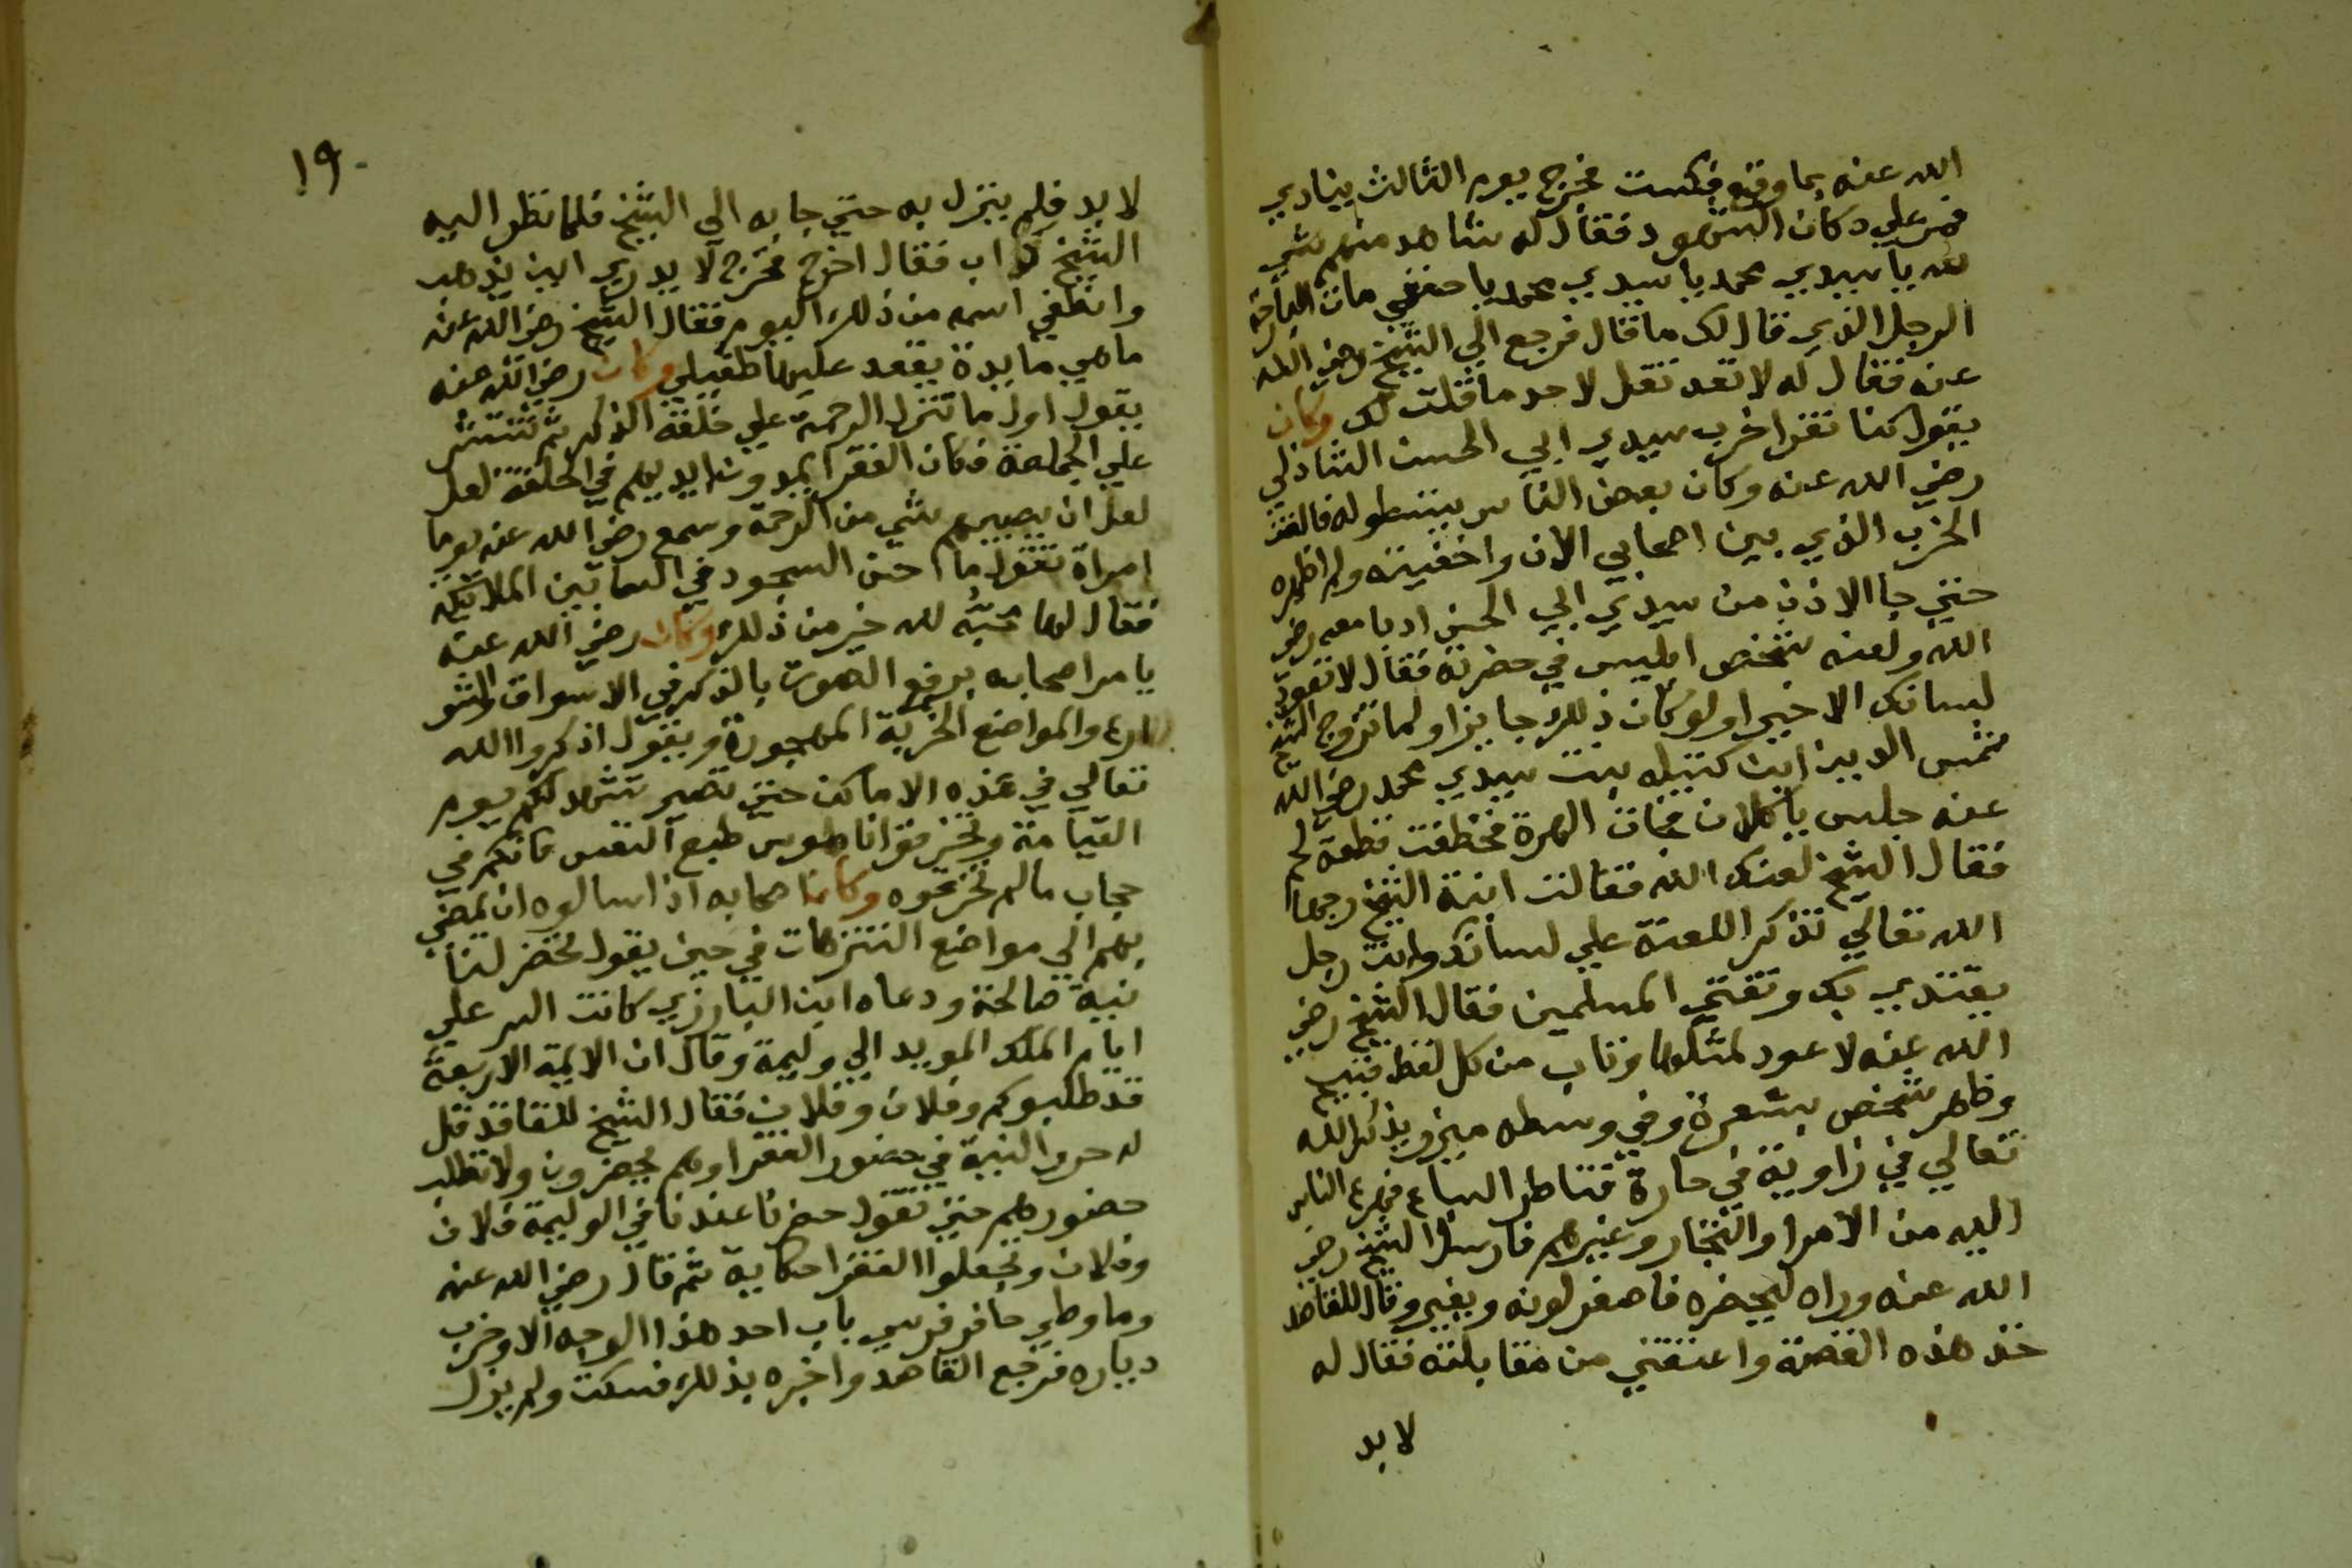 الله عنه بما وقع فسكت فخرج يوم الثالث ينادي
فمر علي دكان الشهود فقال له شاهد منهم شي
لله يا سيدي محمد يا سيدي محمد يا حنفي مات البارحة
الرجل الذي قال لك ما قال فرجع الي الشيخ رضي الله
عنه فقال له لا تعد تقل لاحد ما قلت لك وكان
يقول كنا نقرا حزب سيدي ابي الحسن الشاذلي
رضي الله عنه وكان بعض الناس يستطوله فالفت
الحزب الذي بين اصحابي الان واخفيته ولم اظهره
حتي جا الاذن من سيدي ابي الحسن ادبا معه رضي
الله ولعنه شخص ابليس في حضرته فقال لا تعود
لسانك الا خيرا ولو كان ذلك جايزا ولما تزوج الشيخ
شمس الدين ابن كتيله بنت سيدي محمد رضي الله
عنه جلس ياكلان فجات الهرة فخطفت قطعة لحم
فقال الشيخ لعنك الله فقالت ابنة الشيخ رحمها
الله تعالي تذكر اللعنة علي لسانك وانت رجل
يقتدي بك وتفتي المسلمين فقال الشيخ رضي
الله عنه لا عود لمثلها وتاب من كل لفظ قبيح
وظهر شخص بشعرة وفي وسطه ميزر ويذكر الله
تعالي في زاوية في حارة قناطر السباع فهرع الناس
اليه من الامرا والتجار وغيرهم فارسل الشيخ رضي
الله عنه وراه ليحضره فاصفر لونه وبغير وقال للقاصد
خذ هذه الفضة واعتقني من مقابلته فقال له
لا بد
١٩
لا بد فلم ينزل به حتي جا به الي الشيخ فلما نظر اليه
الشيخ فقال اخرج فخرج لا يدري اين يذهب
وانطفي اسمه من ذلك اليوم فقال الشيخ رضي الله عنه
ما هي مايدة يقعد عليها طفيلي وكان رضي الله عنه
يقول اول ما تنزل الرحمة علي حلقة الذكر ثم تنتشر
علي الجماعة فكان الفقرا يمدون ايديهم في الحلقة لعل
لعل ان يصيبهم شي من الرحمة وسمع رضي الله عنه يوما
امراة تقول ما احسن السجود في السما بين الملايكة
فقال لها محبة لله خير من ذلك وكان رضي الله عنه
يامر اصحابه برفع الصوت بالذكر في الاسواق والشو
ارع والمواضع الخربة المهجورة ويقول اذكروا الله
تعالي في هذه الاماكن حتي تصير تشهد لكم يوم
القيامة وتخرقوا ناموس طبع النفس فانكم في
حجاب ما لم تخرقوه وكان اصحابه اذا سالوه ان يمضي
بهم الي مواضع التنزهات في حين يقول تحضر لنا
نية صالحة ودعاه ابن البارزي كاتب السر علي
ايام الملك المويد الي وليمة وقال ان الايمة الاربعة
قد طلبوكم وفلان وفلان فقال الشيخ للقاصد قل
له حرر النية في حضور الفقرا وهم يحضرون ولا تطلب
حضورهم حتي تقول حضر نا عندنا في الوليمة فلان
وفلان وتجعلوا الفقرا حكاية ثم قال رضي الله عنه
وما وطي حافر فرسي باب احد هذا الوجه الا وخرب
دياره فرجع القاصد واخبره بذلك فسكت ولم يزل